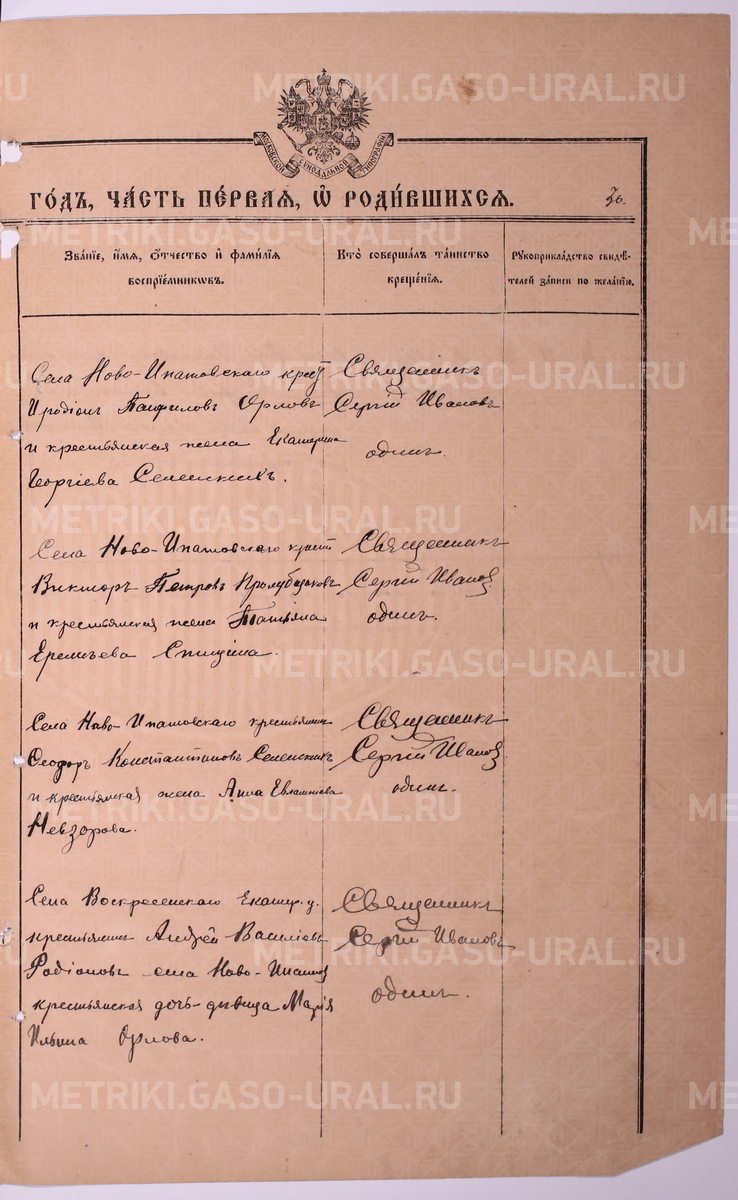 METRIKI.GASO-URAL.RU
МОСКОВСКОЙ СѴНОДАЛЬНОЙ ТИПОГРАФІИ
ГО́ДЪ, ЧА́СТЬ ПЕ́РВАЯ, Ѡ҆ РОДИ́ВШИХСЯ.
Зва́ніе, и҆́мя, ѻ҆́тчество и҆ фами́лія
воспріе́мникѡвъ.
Кто̀ соверша́лъ та́инство
креще́нія.
Рꙋкоприкла́дство свидѣ́-
телей за́писи по жела́нію.
Села Ново-Ипатовскаго крест
Иродіон Панфиловъ Орловъ
и крестьянская жена Екатерина
Георгіева Селенскихъ.
Священникъ
Сергій Ивановъ
одинъ.
Села Ново-Ипатовскаго крест
Викторъ Петровъ
и крестьянская жена Татьяна
Еремѣева Спицина.
Священникъ
Сергій Иванов
одинъ.
Села Ново-Ипатовскаго крестьянин
Ѳеодоръ Константиновъ Селенских
и крестьянская жена Анна Евлампіева
Невзорова.
Священникъ
Сергій Иванов
одинъ.
Села Воскресенскаго Екатер. у.
крестьянин Андрей Василіевъ
Родіоновъ села Ново-Ипатов
крестьянская дочь-дѣвица Марія
Ильина Орлова.
Священникъ
Сергій Ивановъ
одинъ.